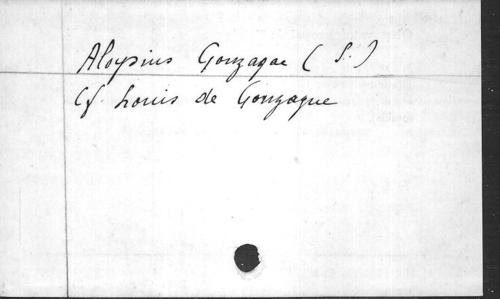 Aloysius Gonzagae (S.)
Cf. Louis de Gonzague